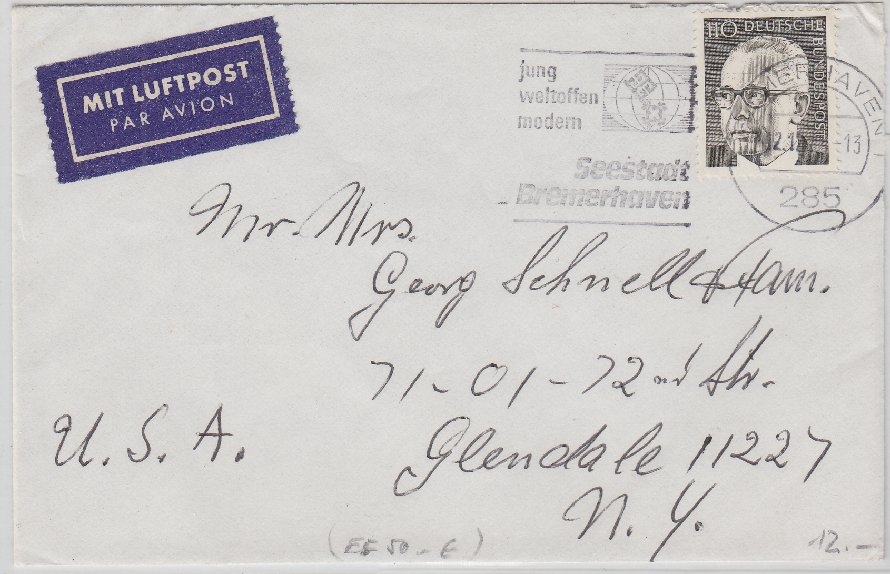 MIT LUFTPOST
PAR AVION
jung
weltoffen
modern
Seestadt
Bremerhaven
110 DEUTSCHE
BUNDESPOST
ERHAVEN 1
-13
285
Mr. Mrs.
Georg Schnell & Fam.
71-01-72nd Str.
Glendale 11227
N. Y.
U. S. A.
(EF 50.- €)
12.-